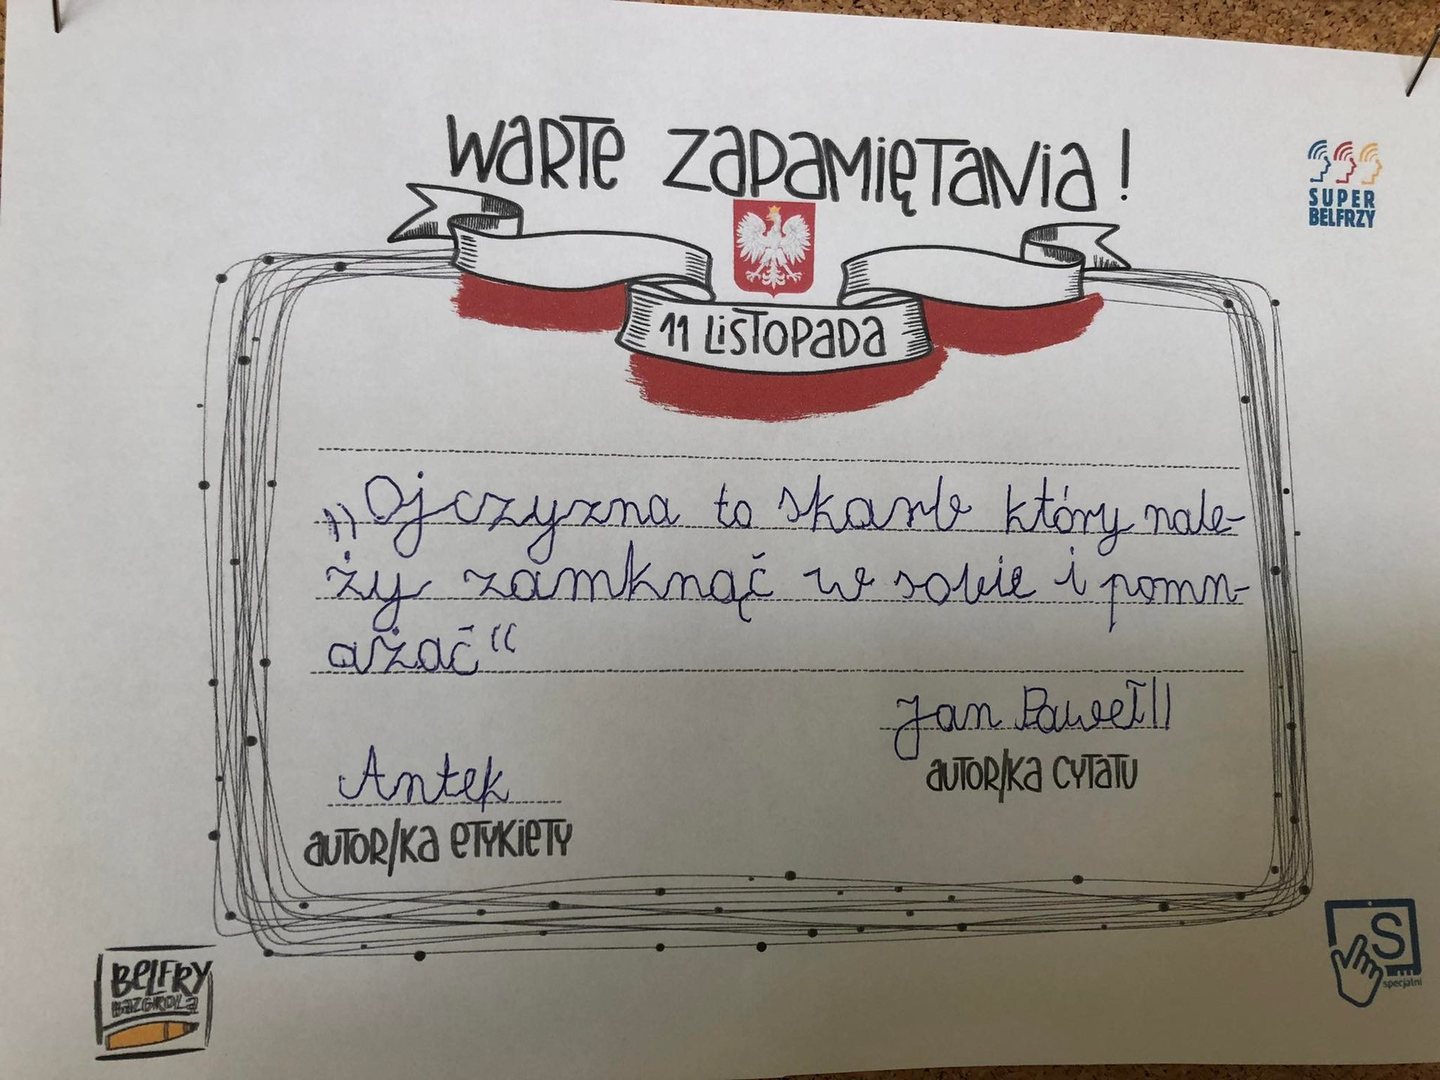 WARTE ZAPAMIĘTANIA!
SUPER
BELFRZY
11 LISTOPADA
„Ojczyzna to skarb który nale-
ży zamknąć w sobie i pomn-
ażać“
Jan Paweł II
AUTOR/KA CYTATU
Antek
AUTOR/KA ETYKIETY
BELFRY
BAZGROLĄ
S
specjalni